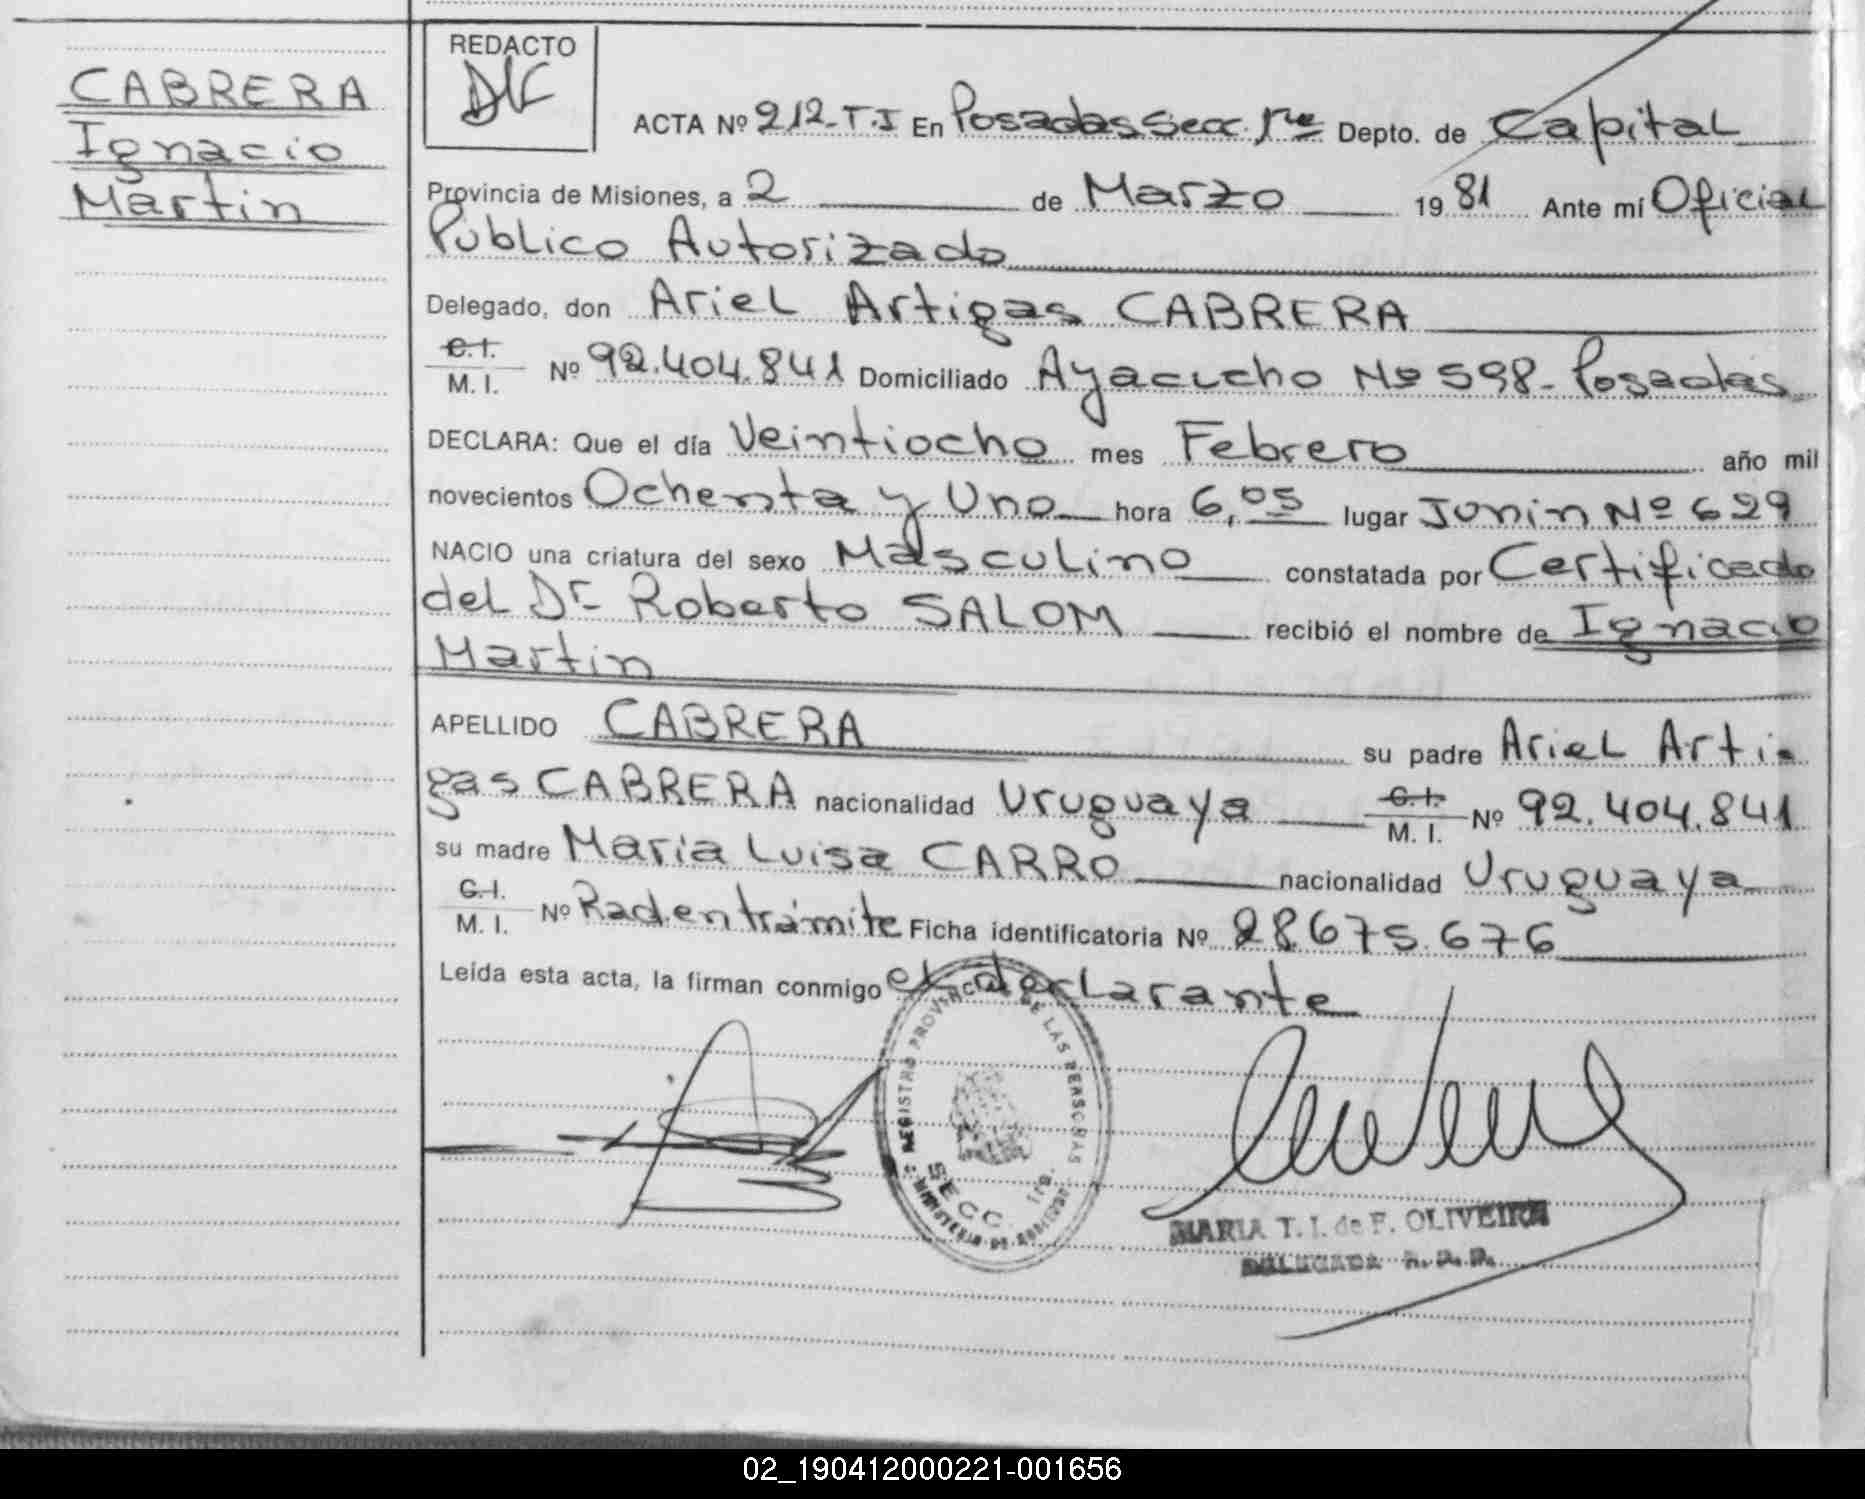 CABRERA
Ignacio
Martin
REDACTO
ACTA Nº 212-T.I En Posadas Secc. 1ra Depto. de Capital
Provincia de Misiones, a 2 de Marzo 1981 Ante mí Oficial
Publico Autorizado
Delegado, don Ariel Artigas CABRERA
C.I.
M. I. Nº 92.404.841 Domiciliado Ayacucho Nº 598- Posadas
DECLARA: Que el día Veintiocho mes Febrero año mil
novecientos Ochenta y Uno hora 6,05 lugar Junin Nº 629
NACIO una criatura del sexo Masculino constatada por Certificado
del Dr Roberto SALOM recibió el nombre de Ignacio
Martin
APELLIDO CABRERA su padre Ariel Arti-
gas CABRERA nacionalidad Uruguaya C.I. M. I. Nº 92.404.841
su madre Maria Luisa CARRO nacionalidad Uruguaya
C.I.
M. I. Nº Rad.en trámite Ficha identificatoria Nº 28.675.676
Leída esta acta, la firman conmigo el declarante
REGISTRO PROVINCIAL DE LAS PERSONAS
SECC. 1ra.
MINISTERIO DE GOBIERNO
MARIA T. I. de F. OLIVEIRA
DELEGADA R. P. P.
02_190412000221-001656